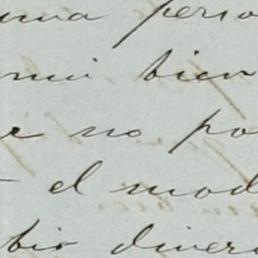 una perso
mi bien
no po
el mod
bio divers